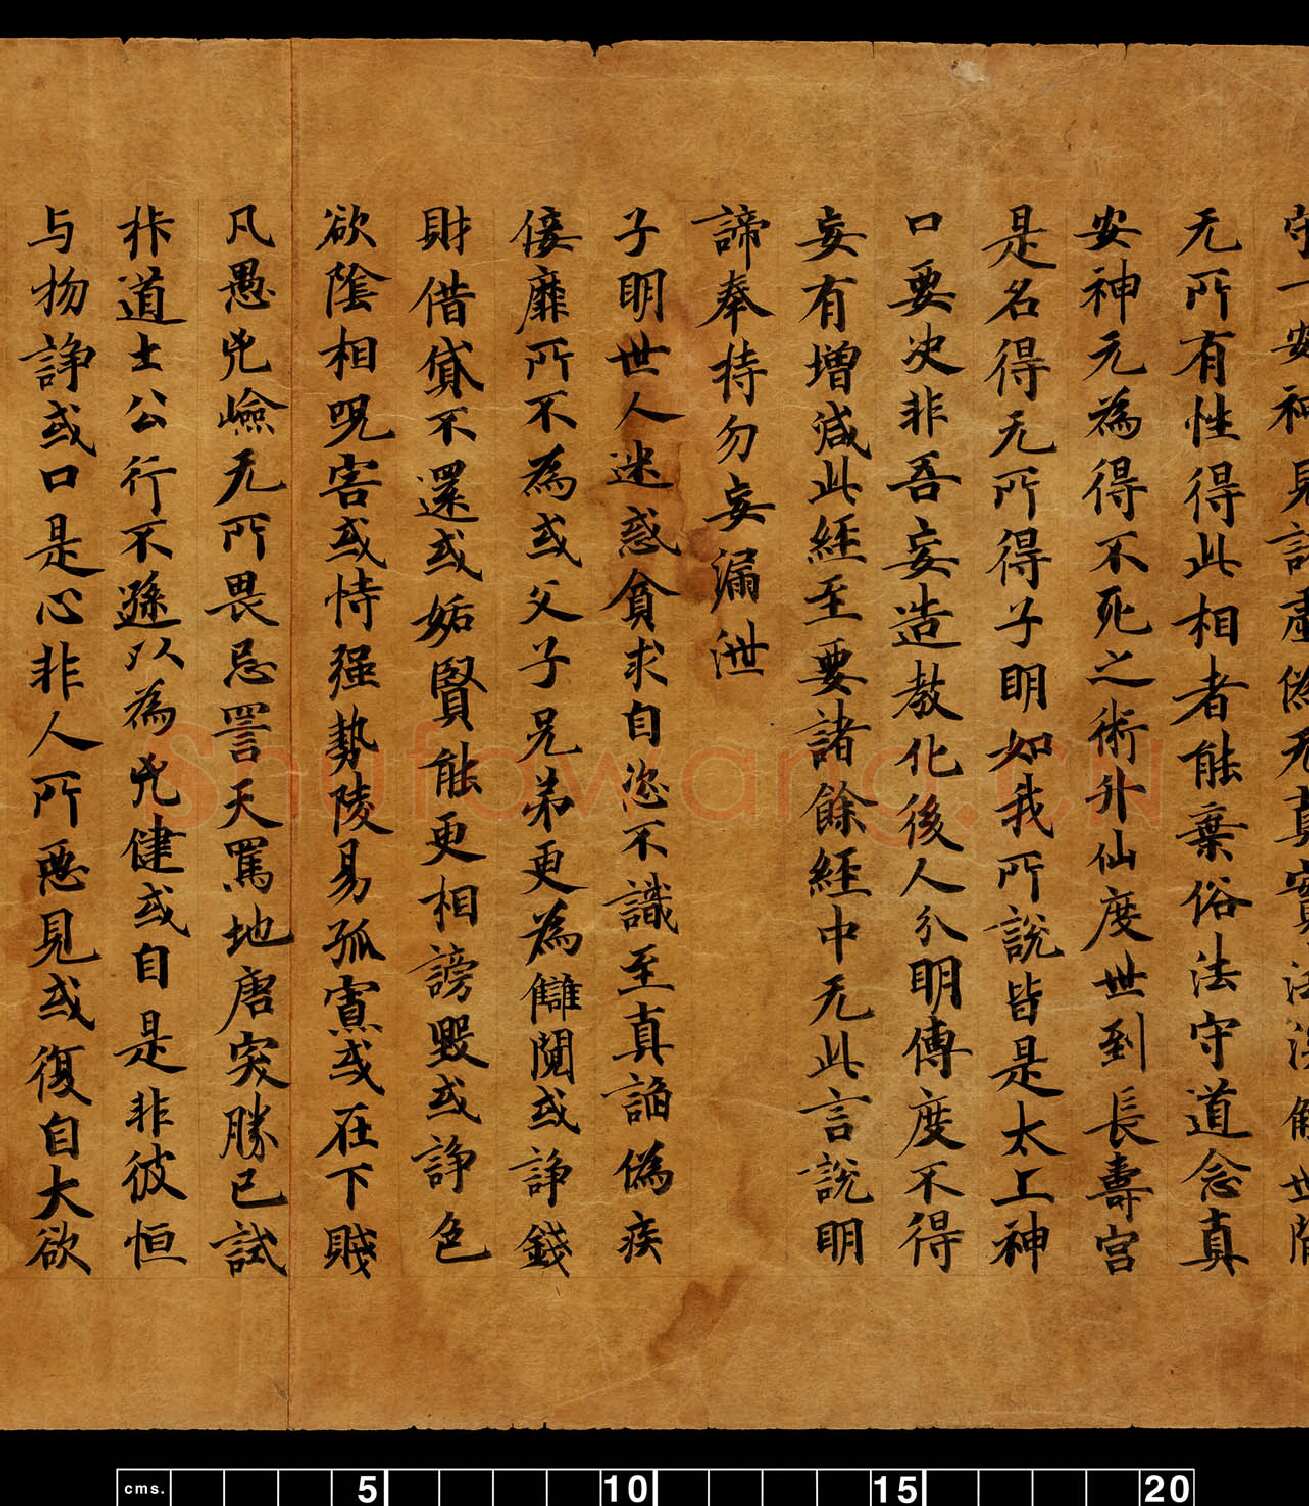 守一安神見諸虛偽无真實法深解世間
无所有性得此相者能棄俗法守道念真
安神元為得不死之術升仙度世到長壽宮
是名得无所得子明如我所說皆是太上神
口要决非吾妄造教化後人分明傳度不得
妄有增減此經至要諸餘經中无此言說明
諦奉持勿妄漏泄
子明世人迷惑貪求自恣不識至真諂偽疾
倿靡所不為或父子兄弟更為讎閱或諍錢
財借貸不還或妬賢能更相謗毀或諍色
欲陰相呪害或恃强勢陵易孤寡或在下賤
凡愚兇嶮无所畏忌詈天罵地唐突勝己試
道士公行不遜以為兇健或自是非彼恒
与物諍或口是心非人所惡見或復自大欲
Shufawang.cn
cms. 5 10 15 20